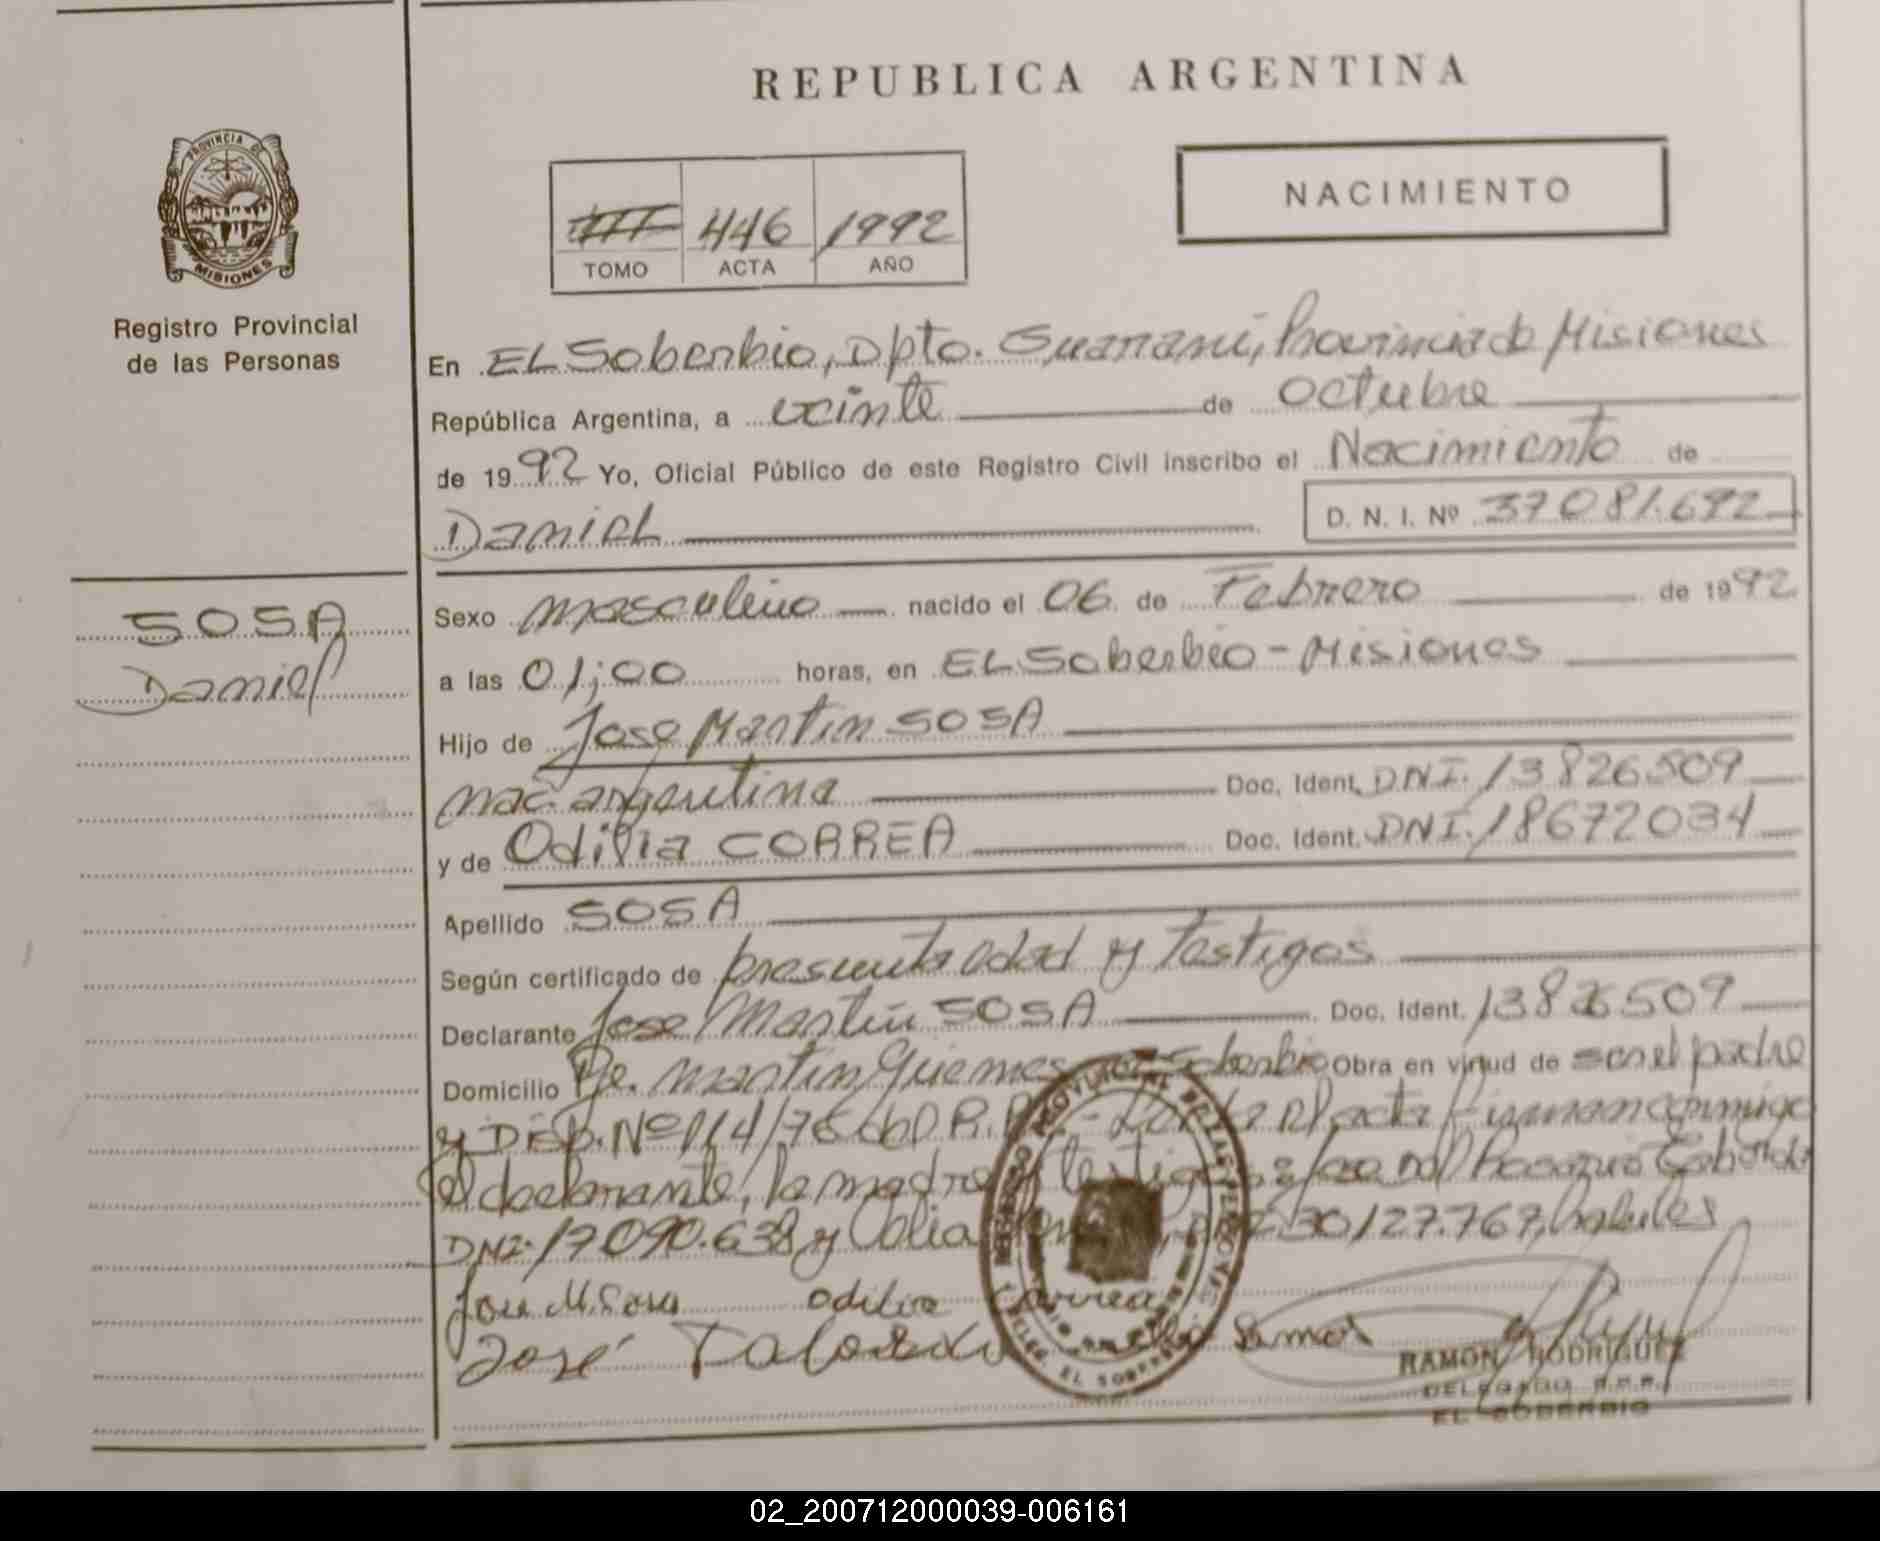 REPUBLICA ARGENTINA
PROVINCIA DE
MISIONES
Registro Provincial
de las Personas
446 1992
TOMO ACTA AÑO
NACIMIENTO
En EL Soberbio, Dpto. Guarani, Provincia de Misiones
República Argentina, a veinte de octubre
de 1992 Yo, Oficial Público de este Registro Civil inscribo el Nacimiento de
DanieL
D. N. I. Nº 37081.692
SOSA
Daniel
Sexo masculino nacido el 06 de Febrero de 1992
a las 01;00 horas, en EL Soberbio - Misiones
Hijo de Jose Martin SOSA
nac. argentina Doc. Ident. DNI. 13826509
y de Odilia CORREA Doc. Ident. DNI. 18672034
Apellido SOSA
Según certificado de presunta edad y Testigos
Declarante Jose Martin SOSA Doc. Ident. 13826509
Domicilio Pje. Martin Guemes Soberbio Obra en virtud de ser el padre
y Disp. Nº 114/76 acta Firman conmigo
el declarante, la madre y testigos
DNI. 17090.638 y 30127.767, habiles
Jose M. Sosa Odilia Correa
José
Ramos
RAMON RODRIGUEZ
DELEGADO R.P.P.
EL SOBERBIO
REGISTRO PROVINCIAL DE LAS PERSONAS
DELEG. EL SOBERBIO
02_200712000039-006161